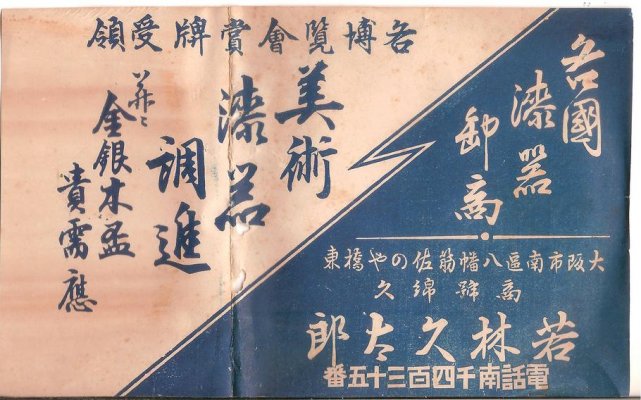 各國
漆器
卸商
大阪市南區八幡筋佐のや橋東
商號綿久
若林久太郎
電話南千四百三十五番
各博覧會賞牌受領
美術
漆器
調進
并ニ
金銀木盃
貴需應